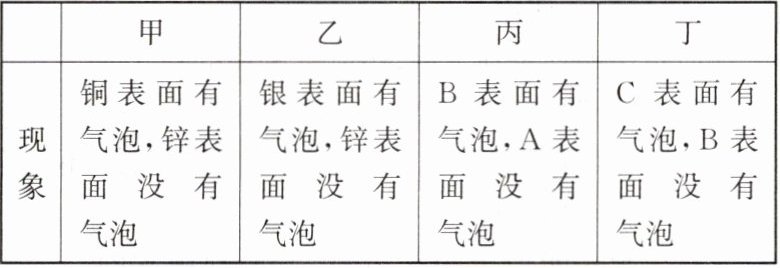 甲 乙 丙 丁
现象
铜表面有
气泡,锌表
面没有
气泡
银表面有
气泡,锌表
面没有
气泡
B表面有
气泡,A表
面没有
气泡
C表面有
气泡,B表
面没有
气泡